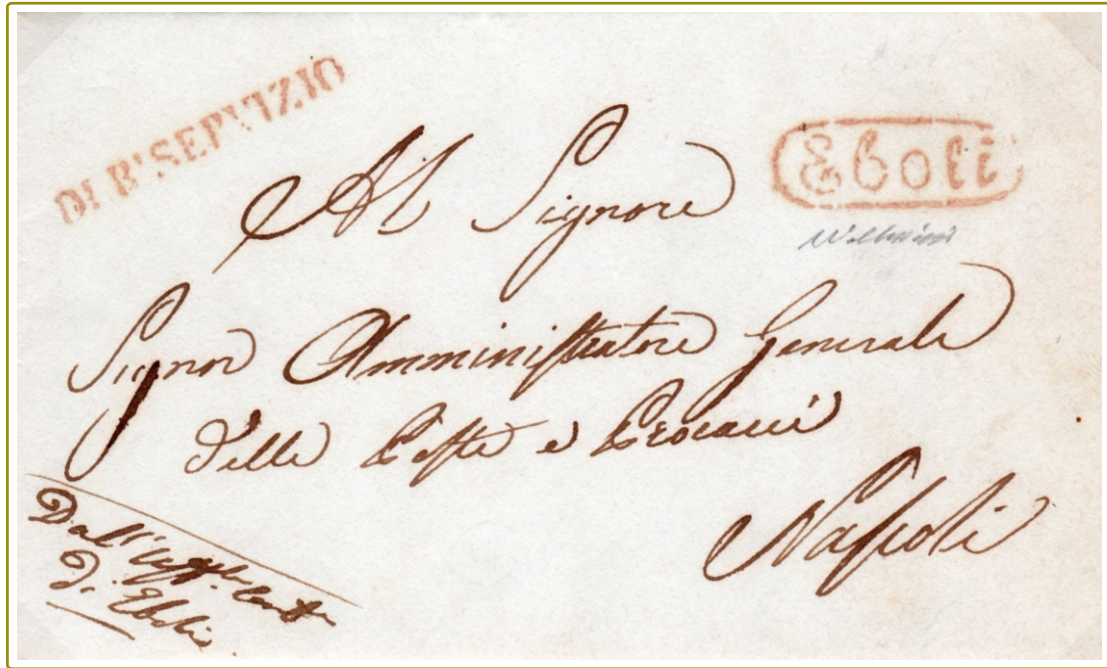 DI R. SERVIZIO
Eboli
Al Signore
Signor Amministratore Generale
delle Poste e Procacci
Napoli
Dall'
di Eboli